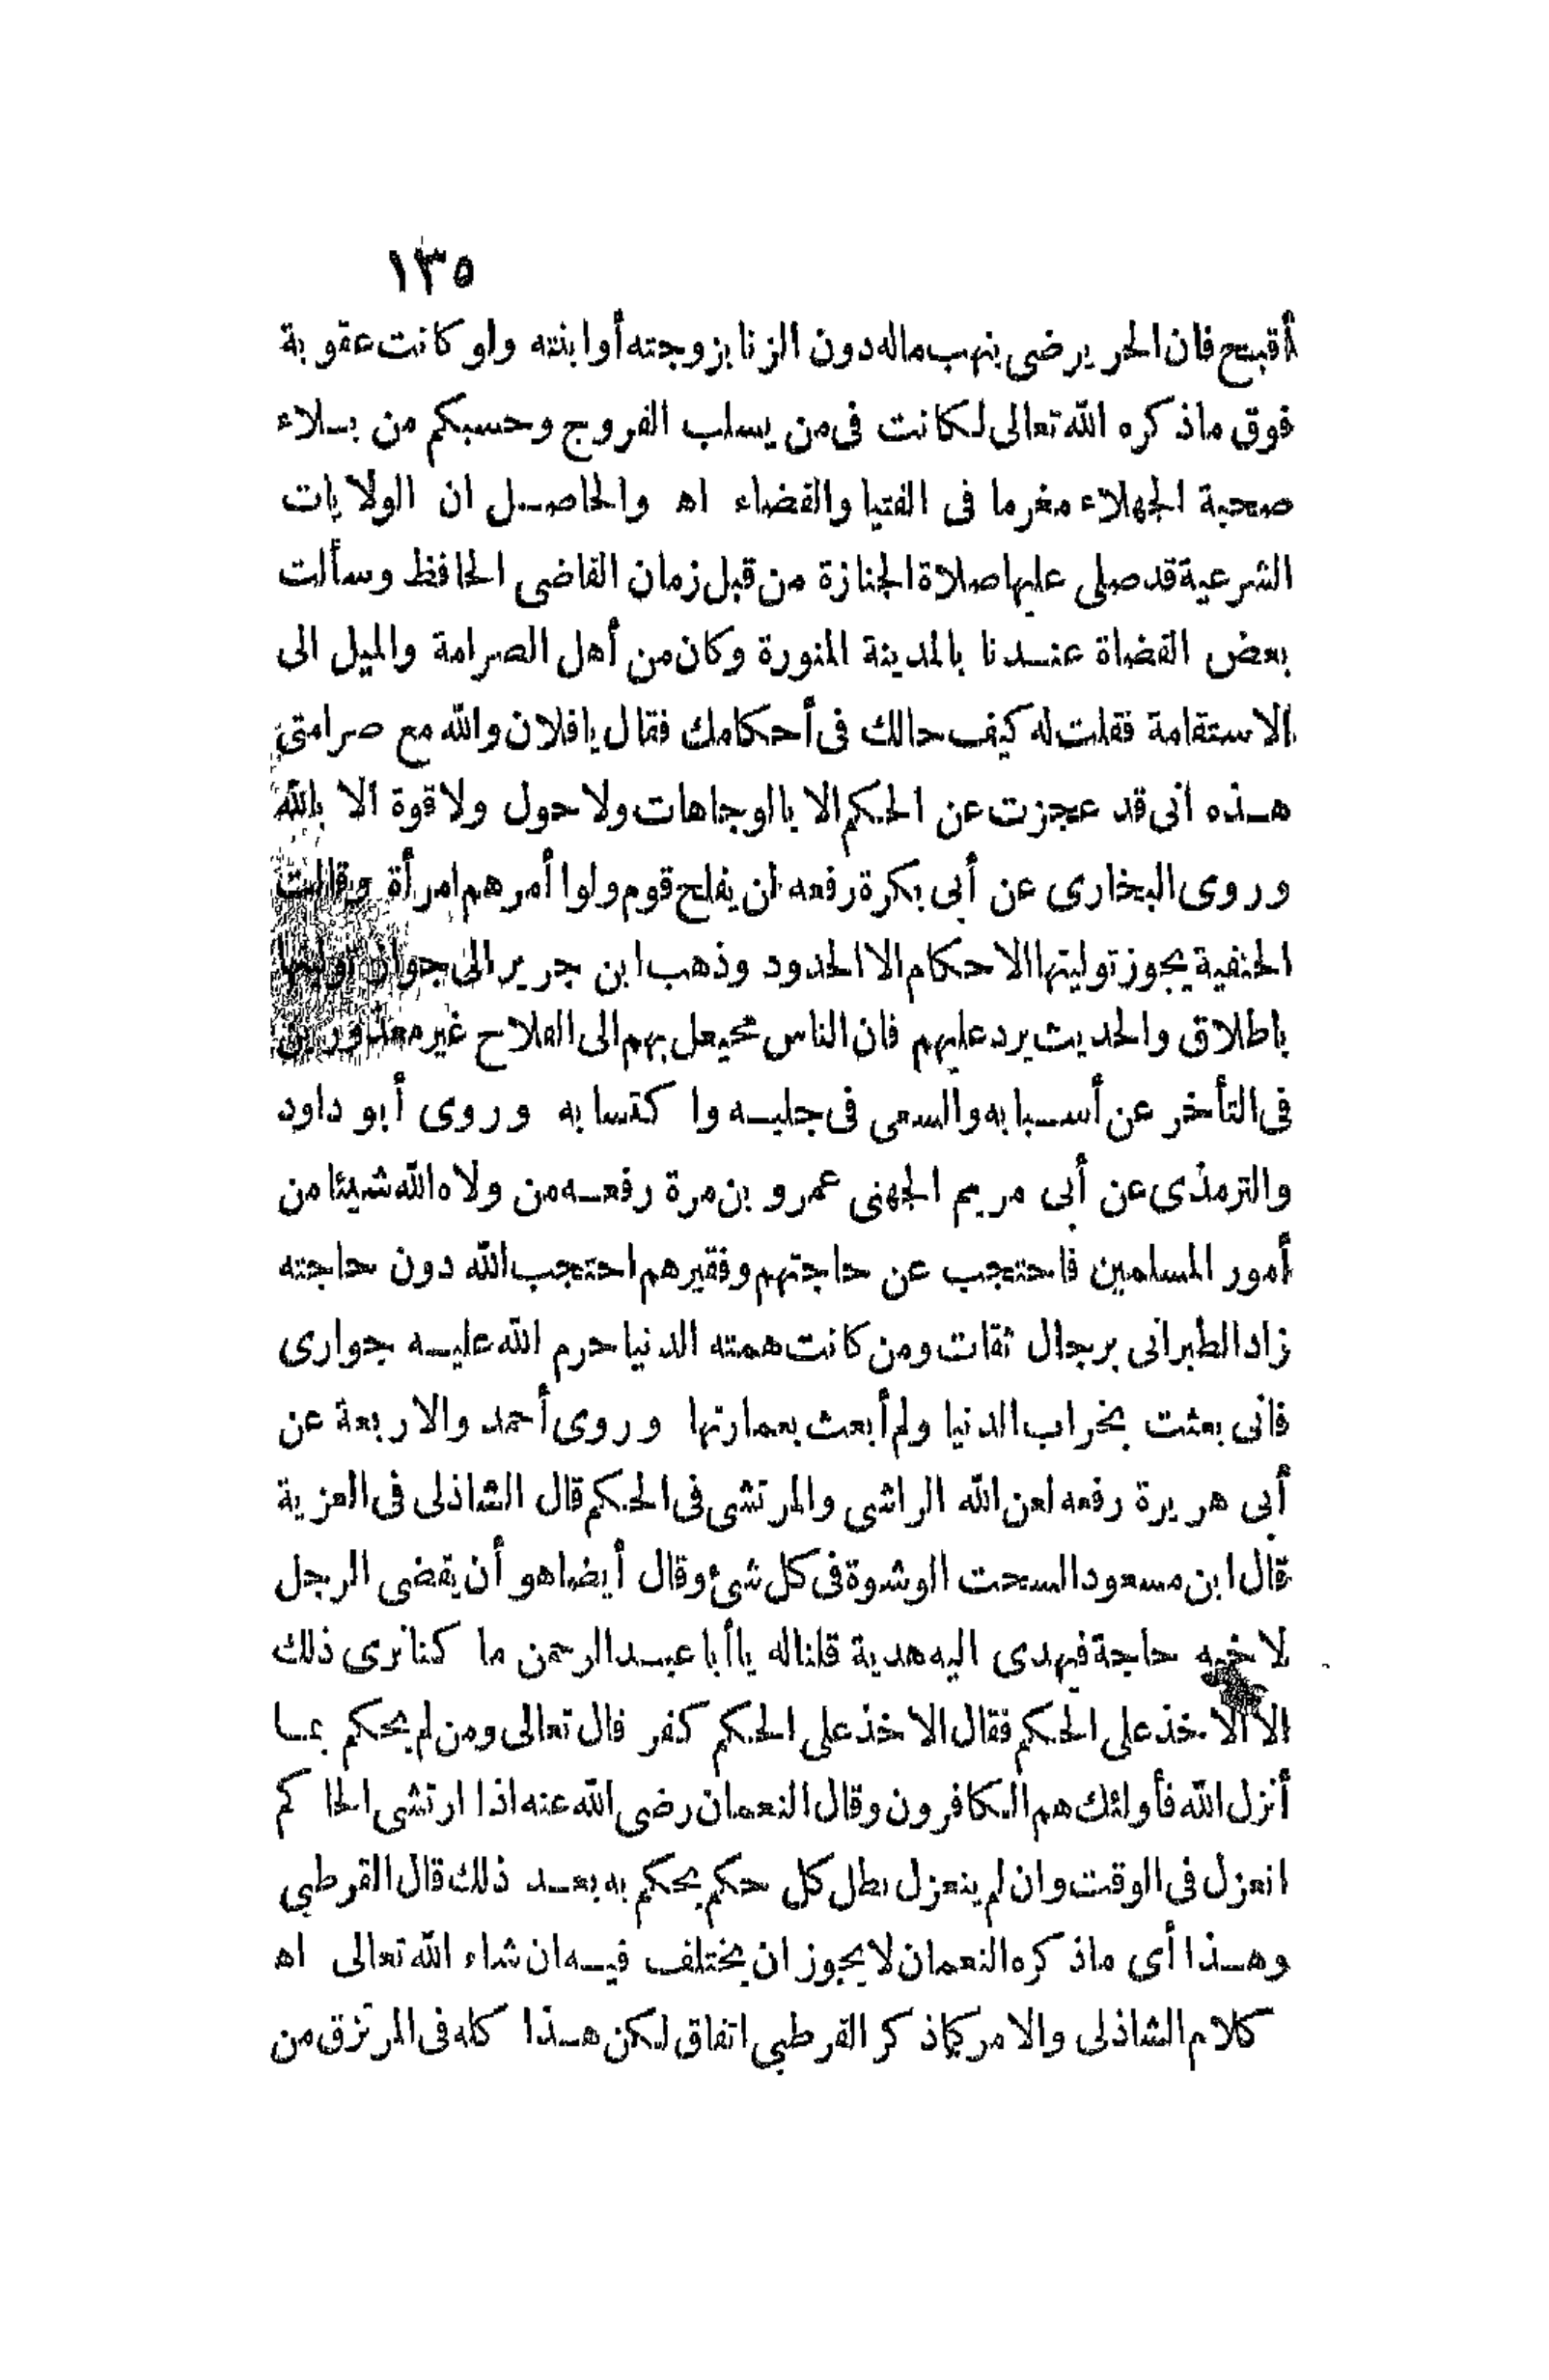 ١٣٥
أقبح فان الحر يرضى بنهب ماله دون الزنا بزوجته أوابنته ولو كانت عقوبة
فوق ماذكره الله تعالى لكانت فى من يسلب الفروج وحسبكم من بلاء
صحبة الجهلاء مغرما فى الفتيا والقضاء اه والحاصل ان الولايات
الشرعية قد صلى عليها صلاة الجنازة من قبل زمان القاضى الحافظ وسألت
بعض القضاة عندنا بالمدينة المنورة وكان من أهل الصرامة والميل الى
الاستقامة فقلت له كيف حالك فى أحكامك فقال يافلان والله مع صرامتى
هذه انى قد عجزت عن الحكم الا بالوجاهات ولاحول ولاقوة الا بالله
وروى البخارى عن أبى بكرة رفعه ان يفلح قوم ولوا أمرهم امرأة وقالت
الحنفية يجوز توليتها الاحكام الا الحدود وذهب ابن جرير الى جواز توليتها
باطلاق والحديث يرد عليهم فان الناس محيعل بهم الى الفلاح غير معذورين
فى التأخر عن أسبابه والسعى فى جلبه واكتسابه وروى أبو داود
والترمذى عن أبى مريم الجهنى عمرو بن مرة رفعه من ولاه الله شيئا من
أمور المسلمين فاحتجب عن حاجتهم وفقيرهم احتجب الله دون حاجته
زاد الطبرانى برجال ثقات ومن كانت همته الدنيا حرم الله عليه جوارى
فانى بعثت بخراب الدنيا ولم أبعث بعمارتها وروى أحمد والاربعة عن
أبى هريرة رفعه لعن الله الراشى والمرتشى فى الحكم قال الشاذلى فى العزية
قال ابن مسعود السحت الوشوة فى كل شئ وقال أيضا هو أن يقضى الرجل
لاخيه حاجة فيهدى اليه هدية قلنا له ياأبا عبد الرحمن ما كنا نرى ذلك
الا الاخذ على الحكم فقال الاخذ على الحكم كفر قال تعالى ومن لم يحكم بما
أنزل الله فأولئك هم الكافرون وقال النعمان رضى الله عنه اذا ارتشى الحاكم
انعزل فى الوقت وان لم ينعزل بطل كل حكم يحكم به بعد ذلك قال القرطبى
وهذا أى ماذكره النعمان لا يجوز ان يختلف فيه ان شاء الله تعالى اه
كلام الشاذلى والامر كماذكر القرطبى اتفاق لكن هذا كله فى المرتزق من